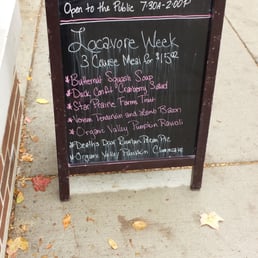 Open to the Public 7:30A-2:00P
Locavore Week
3 Course Meal for $15.00
* Butternut Squash Soup
* Duck Confit Cranberry Salad
* Star Prairie Farms Trout
* Venison Tenderloin and Lamb Bacon
* Organic Valley Pumpkin Ravioli
* Death's Door Pecan Pie
* Organic Valley Pumpkin Cheesecake